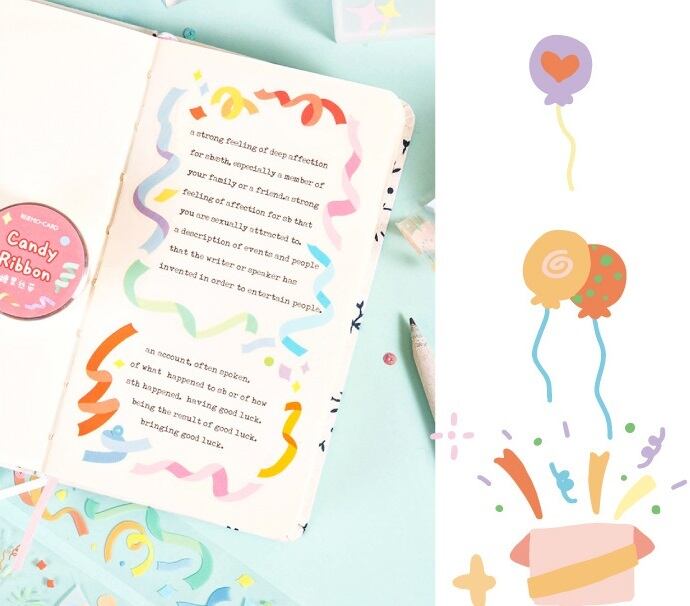 KNEMO·CARD
Candy
Ribbon
a strong feeling of deep affection
for sb/sth, especially a member of
your family or a friend.a strong
feeling of affection for sb that
you are sexually attracted to.
a description of events and people
that the writer or speaker has
invented in order to entertain people.
an account, often spoken,
of what happened to sb or of how
sth happened. having good luck.
being the result of good luck.
bringing good luck.